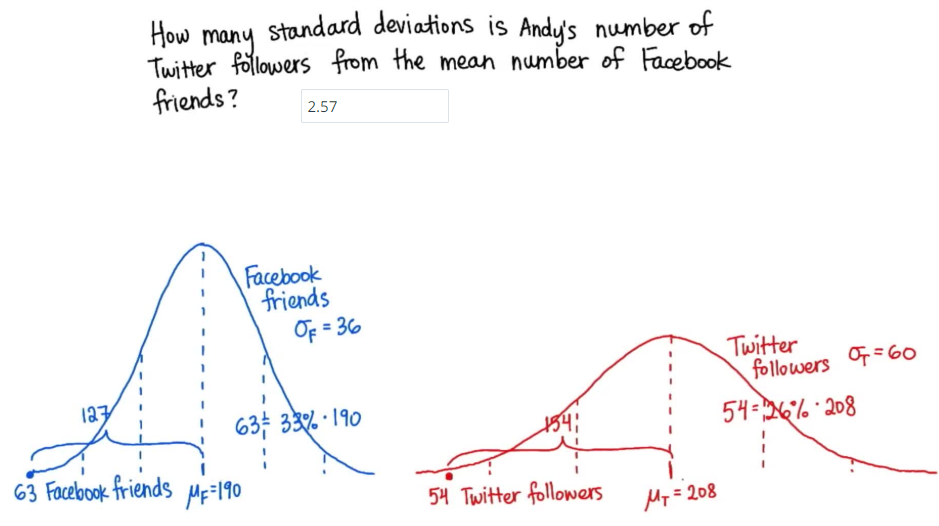 How many standard deviations is Andy's number of
Twitter followers from the mean number of Facebook
friends?
2.57
Facebook
friends
σF = 36
127
63 = 33% · 190
63 Facebook friends
μF=190
Twitter
followers
σT = 60
154
54 = 26% · 208
54 Twitter followers
μT = 208